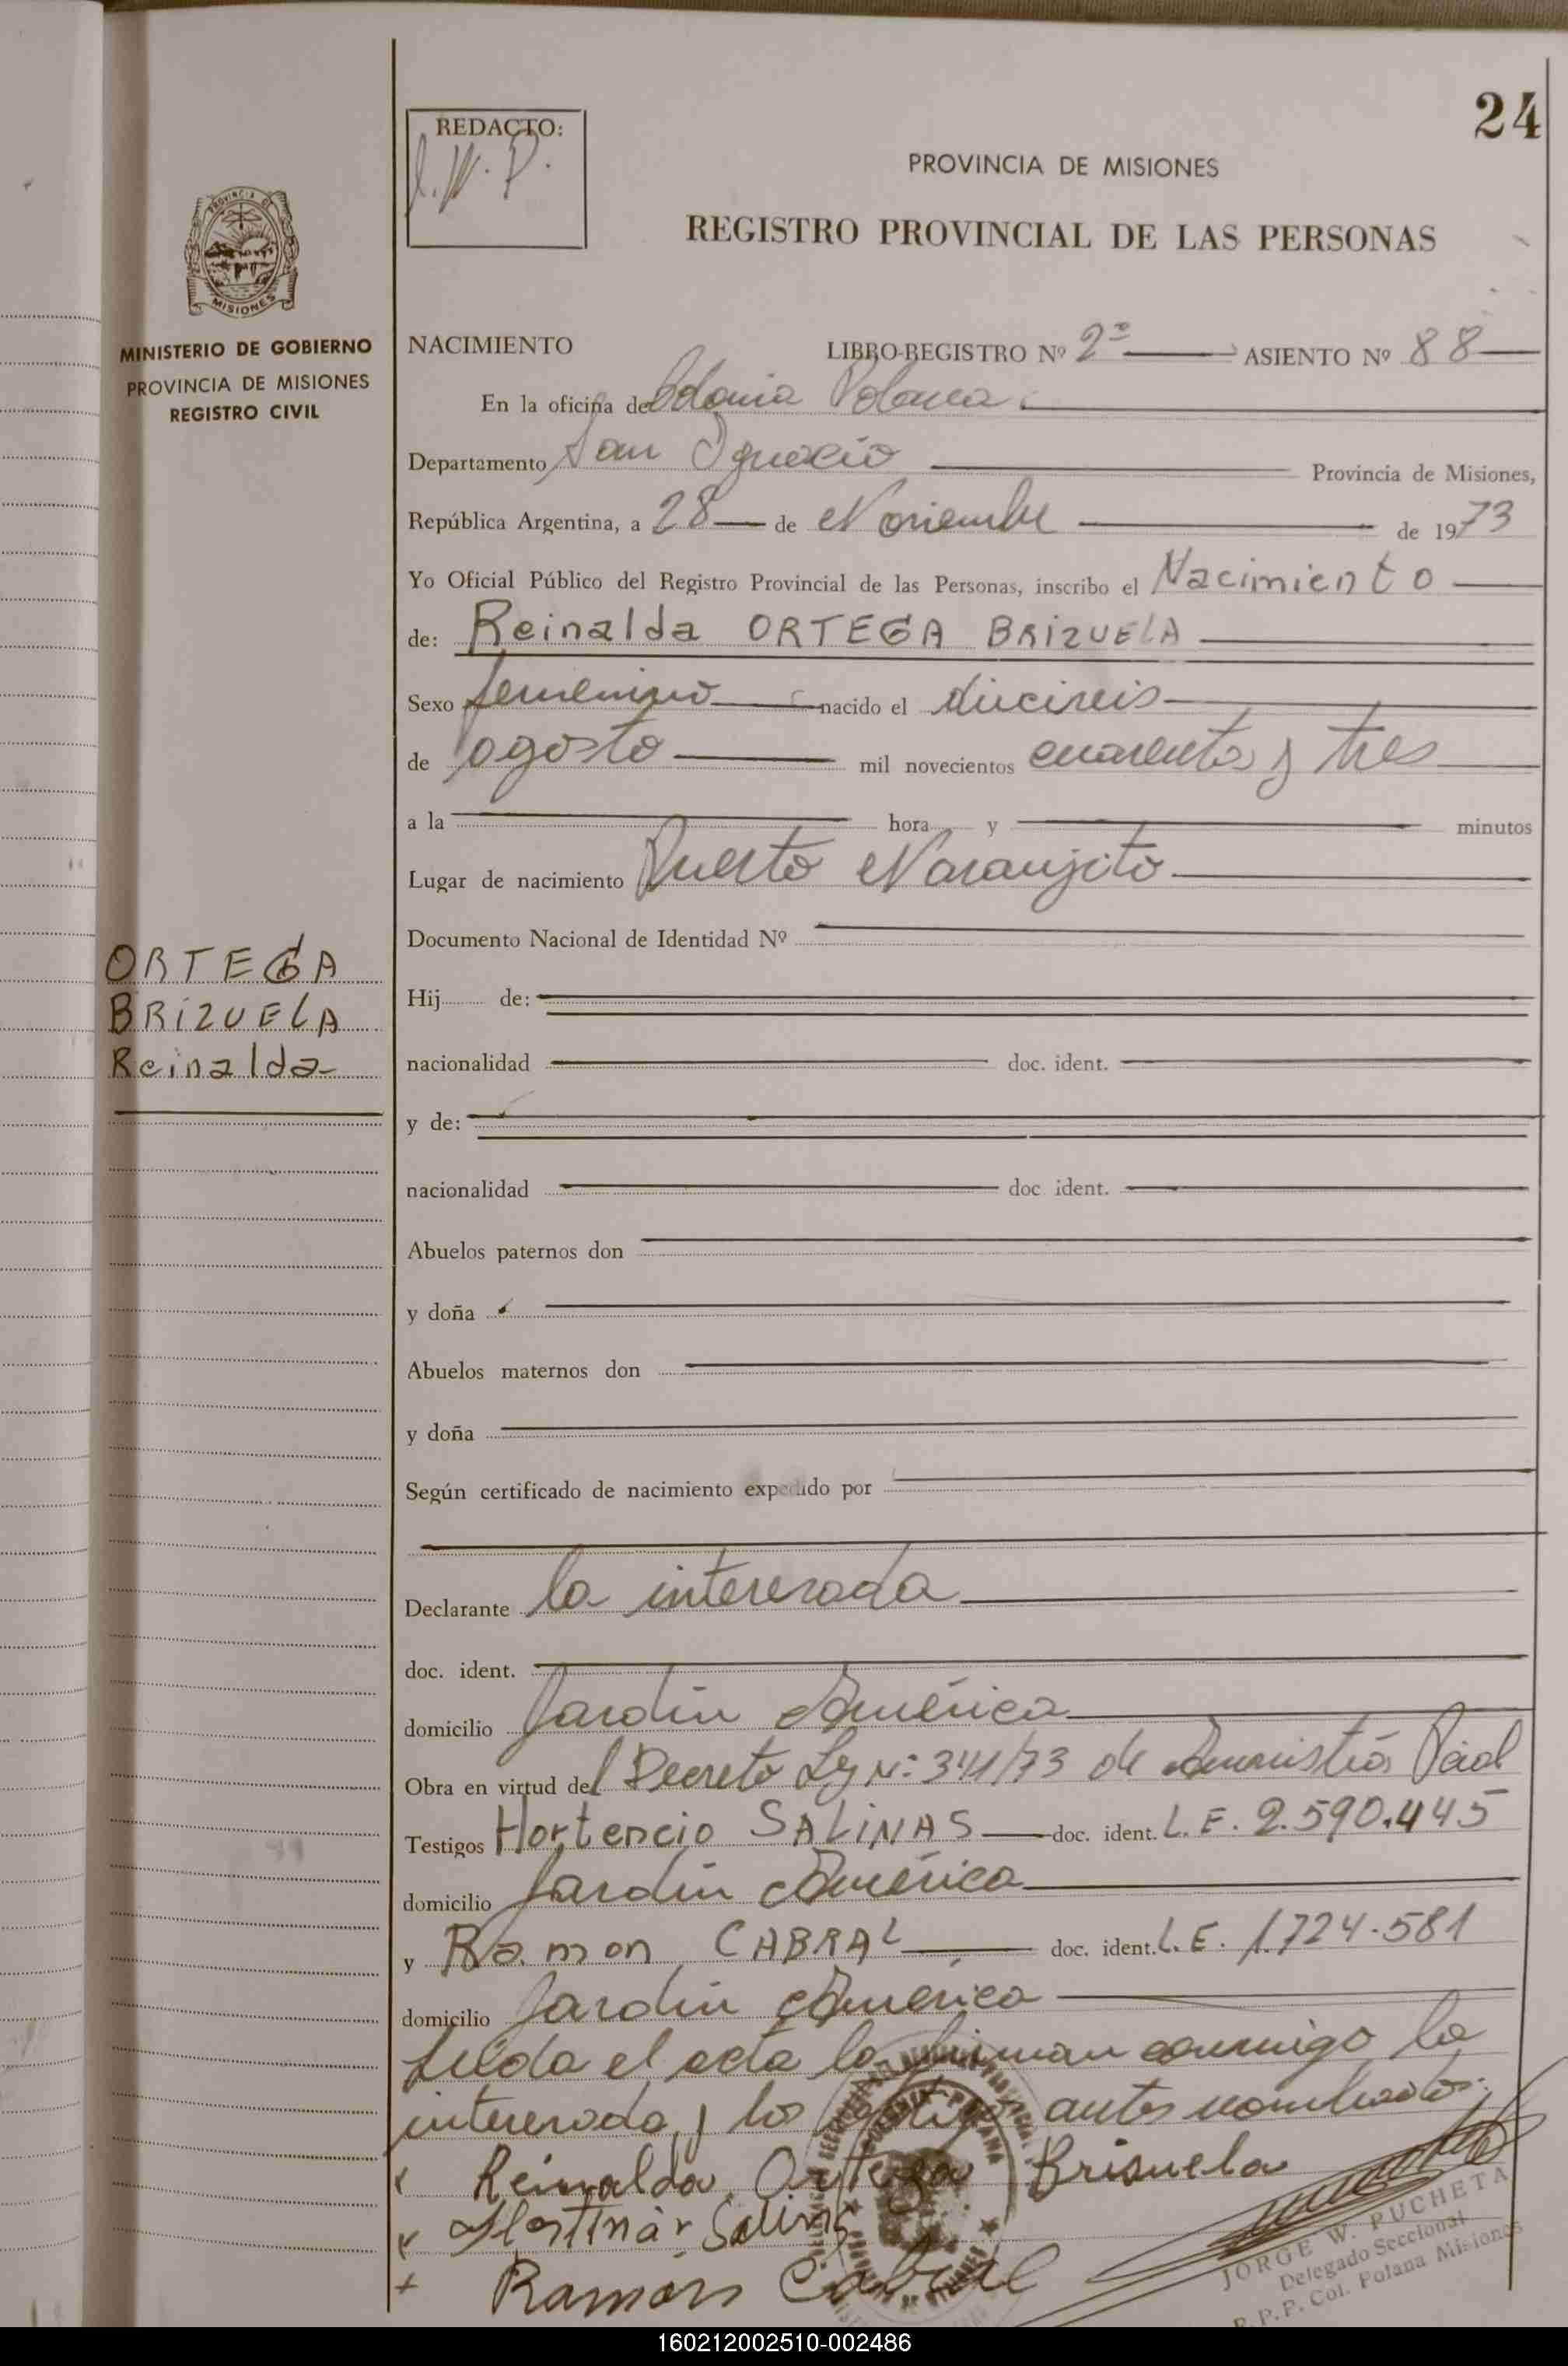 24
REDACTO:
J.W.P.
PROVINCIA DE MISIONES
REGISTRO PROVINCIAL DE LAS PERSONAS
PROVINCIA DE
MISIONES
MINISTERIO DE GOBIERNO
PROVINCIA DE MISIONES
REGISTRO CIVIL
NACIMIENTO LIBRO-REGISTRO Nº 2º ASIENTO Nº 88
En la oficina de Colonia Polana
Departamento San Ignacio Provincia de Misiones,
República Argentina, a 28 de Noviembre de 1973
Yo Oficial Público del Registro Provincial de las Personas, inscribo el Nacimiento
de: Reinalda ORTEGA BRIZUELA
Sexo femenino nacido el dieciseis
de agosto mil novecientos cuarenta y tres
a la hora y minutos
Lugar de nacimiento Puerto Naranjito
Documento Nacional de Identidad Nº
ORTEGA
BRIZUELA
Reinalda
Hij de:
nacionalidad doc. ident.
y de:
nacionalidad doc ident.
Abuelos paternos don
y doña
Abuelos maternos don
y doña
Según certificado de nacimiento expedido por
Declarante la interesada
doc. ident.
domicilio Jardín América
Obra en virtud del Decreto Ley Nº 341/73 de
Testigos Hortencio SALINAS doc. ident. L.E. 2.590.445
domicilio Jardín América
y Ramon CABRAL doc. ident. L.E. 1.724.581
domicilio Jardín América
Leida el acta la firman conmigo la
interesada y los testigos antes nombrados.
x Reinalda Ortega Brisuela
x Salinas
+ Ramon Cabral
JORGE W. PUCHETA
Delegado Seccional
R.P.P. Col. Polana Misiones
160212002510-002486